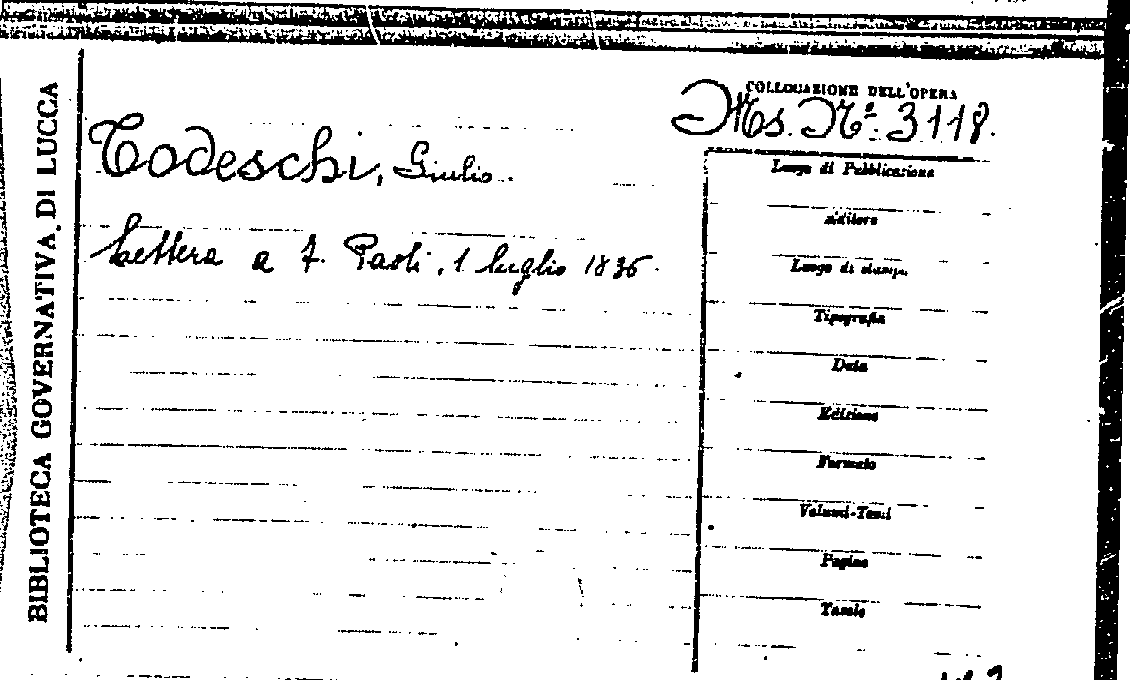 BIBLIOTECA GOVERNATIVA DI LUCCA
COLLOCAZIONE DELL'OPERA
Ms. Nº. 3118.
Todeschi, Giulio.
Lettera a F. Paoli, 1 luglio 1836.
Luogo di Pubblicazione
Editore
Luogo di stampa
Tipografia
Data
Edizione
Formato
Volumi-Tomi
Pagine
Tavole